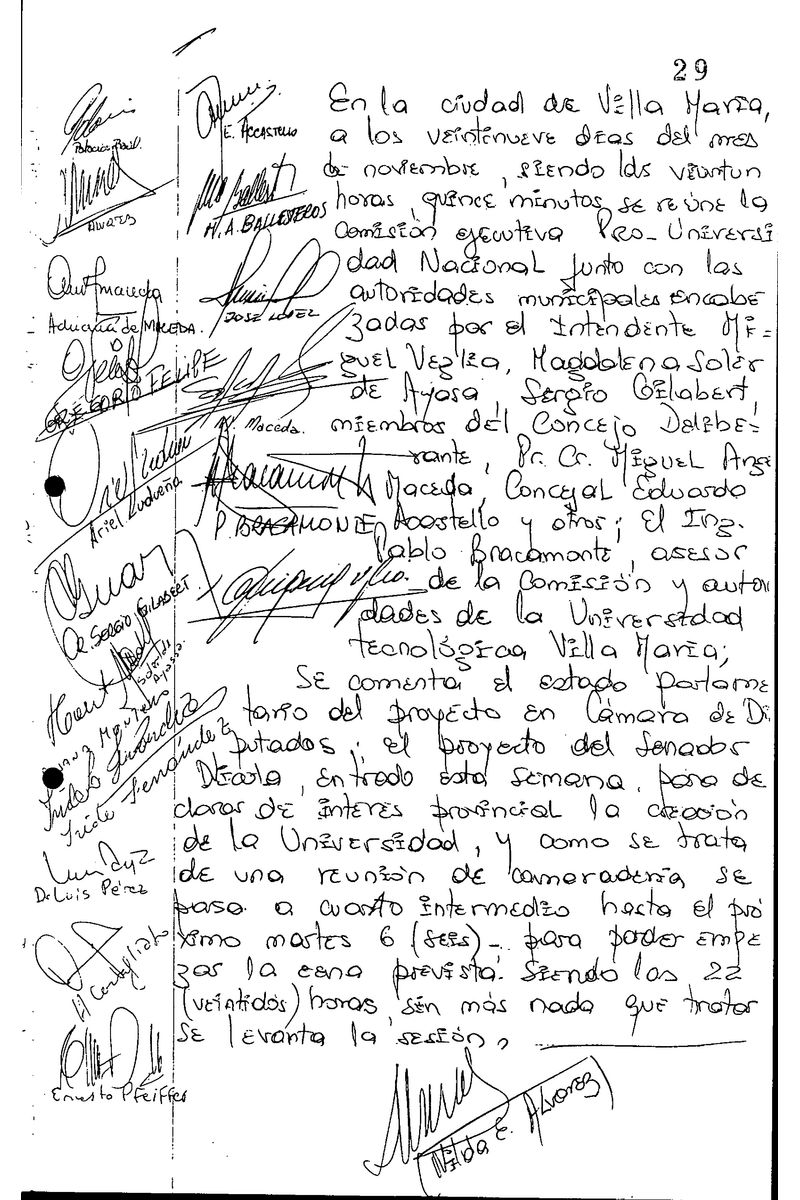 29
En la ciudad de Villa María,
a los veintinueve días del mes
de noviembre, siendo las veintiun
horas, quince minutos, se reúne la
Comisión ejecutiva Pro-Universi
dad Nacional junto con las
autoridades municipales encabe
zadas por el Intendente Mi=
guel Veglia, Magdalena Soler
de Ayasa, Sergio Gilabert,
miembros del Concejo Delibe=
rante, Pr. Cr. Miguel Ange
Maceda, Concejal Eduardo
Acastello y otros; el Ing.
Pablo Bracamonte, asesor
de la Comisión y autori
dades de la Universidad
Tecnológica Villa María;
Se comenta el estado parlame
tario del proyecto en Cámara de Di
putados; el proyecto del Senador
entrado esta semana, para de
clarar de interés provincial la creación
de la Universidad, y como se trata
de una reunión de camaradería se
pasa a cuarto intermedio hasta el pró
ximo martes 6 (seis)- para poder empe
zar la cena prevista. Siendo las 22
(veintidos) horas, sin más nada que tratar
se levanta la sesión,
E. ACCASTELLO
Alvarez
H.A. BALLESTEROS
Adriana de MACEDA.
JOSE LOPEZ
GREGORIO FELIPE
M. Maceda.
Ariel Ludueña
P. BRACAMONTE
Dr. SERGIO GILABERT
Soler de
Ayassa.
Fernández
Dr Luis Pérez
Ernesto Pfeiffer
(Nilda E. Alvarez)